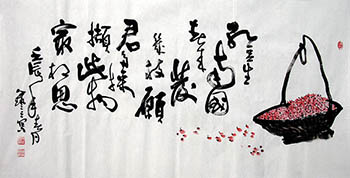 紅豆生
南國
春來發
幾枝願
君多採
擷此物
最相思
壬辰年春月